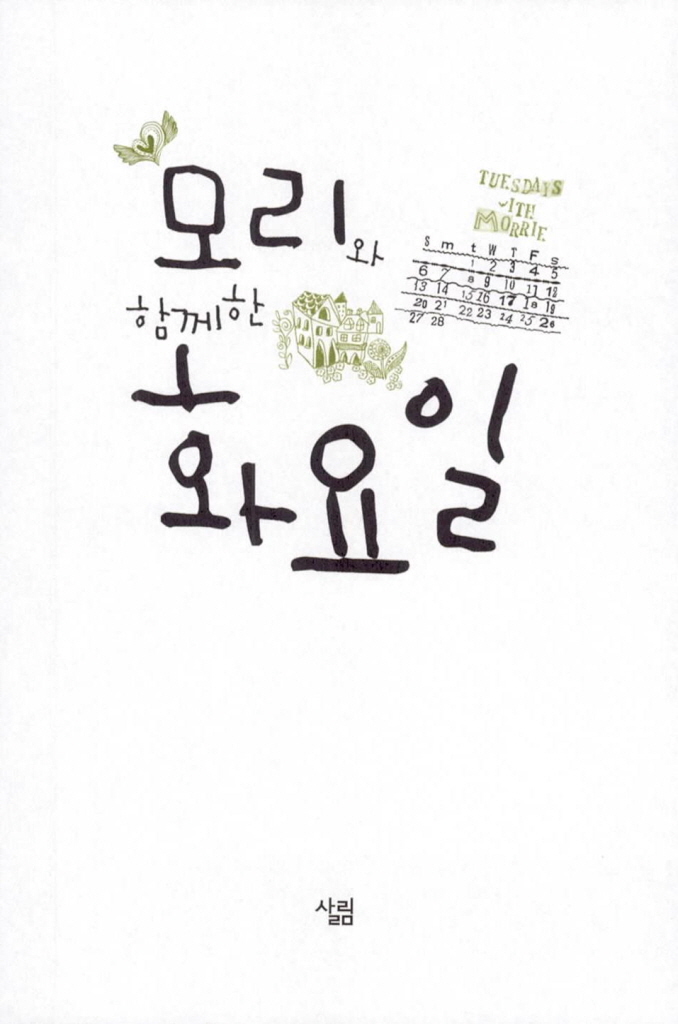 모리와
함께한
화요일
TUESDAYS
WITH
MORRIE
S m t W T F S
1 2 3 4 5
6 7 8 9 10 11 12
13 14 15 16 17 18 19
20 21 22 23 24 25 26
27 28
살림